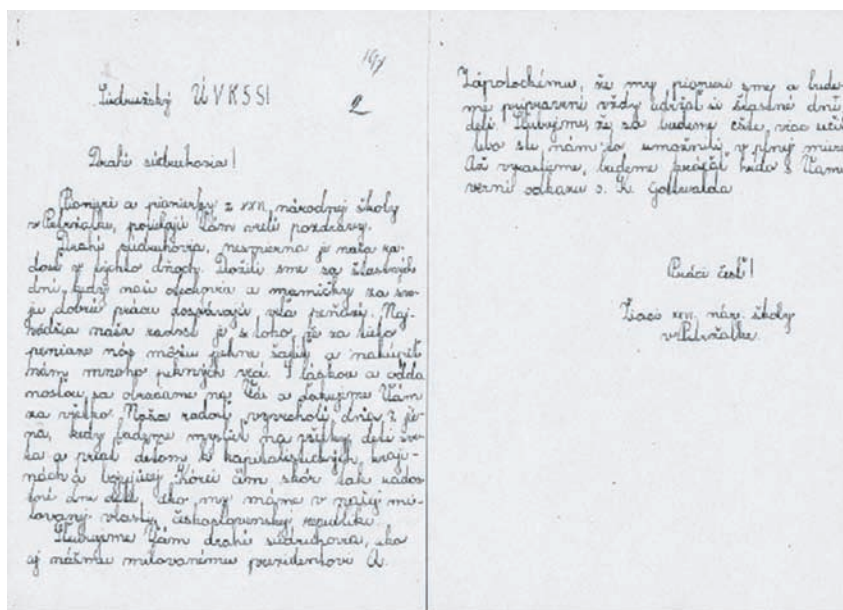 Súdružský ÚVKSS!
2
Drahí súdruhovia!
Pionieri a pionierky z XXVI. národnej školy
v Petržalke, posielajú Vám vrelé pozdravy.
Drahí súdruhovia, nesmierna je naša ra-
dosť v týchto dňoch. Dožili sme sa šťastných
dní, kedy naši oteckovia a mamičky za svo-
ju dobrú prácu dostávajú veľa peňazí. Naj-
väčšia naša radosť je z toho že za tieto
peniaze nás môžu pekne šatiť a nakúpiť
nám mnoho pekných vecí. S láskou a odda
nosťou sa obraciame na Vás a ďakujeme Vám
za všetko. Naša radosť vyvrcholí dňa 7. jú-
na, kedy budeme myslieť na všetky deti sve-
ta a priať deťom v kapitalistických kraji-
nách a bojujúcej Kórei čím skôr tak rados
tné dni detí, ako my máme v našej mi-
lovanej vlasti, československej republike.
Sľubujeme Vám drahí súdruhovia, ako
aj nášmu milovanému prezidentovi A.
Zápotockému, že my pionieri sme a bude-
me pripravení vždy udržať si šťastné dni
detí. Sľubujeme, že sa budeme ešte viac učiť
lebo ste nám to umožnili v plnej miere
Až vyrastieme, budeme kráčať hrdo s Vami
verní odkazu s. K. Gottwalda
Práci česť!
Žiaci XXVI. nár. školy
v Petržalke.